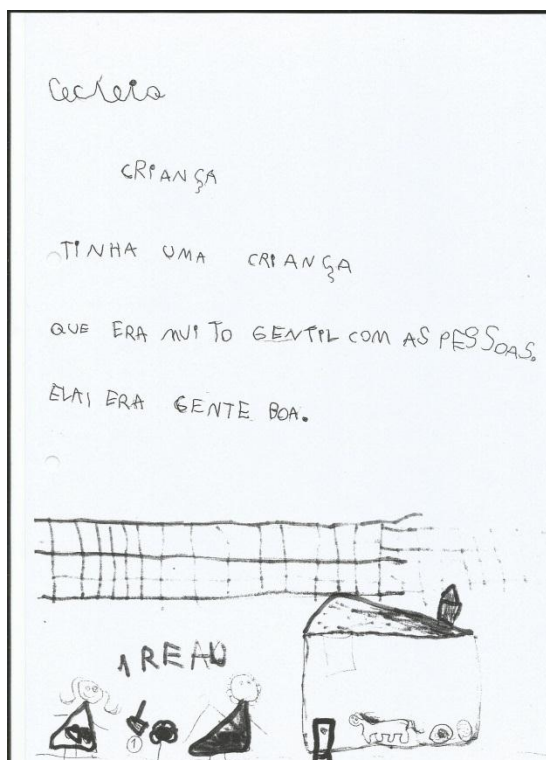 CRIANÇA
TINHA UMA CRIANÇA
QUE ERA MUITO GENTIL COM AS PESSOAS.
ELAI ERA GENTE BOA.
1 REAU
1